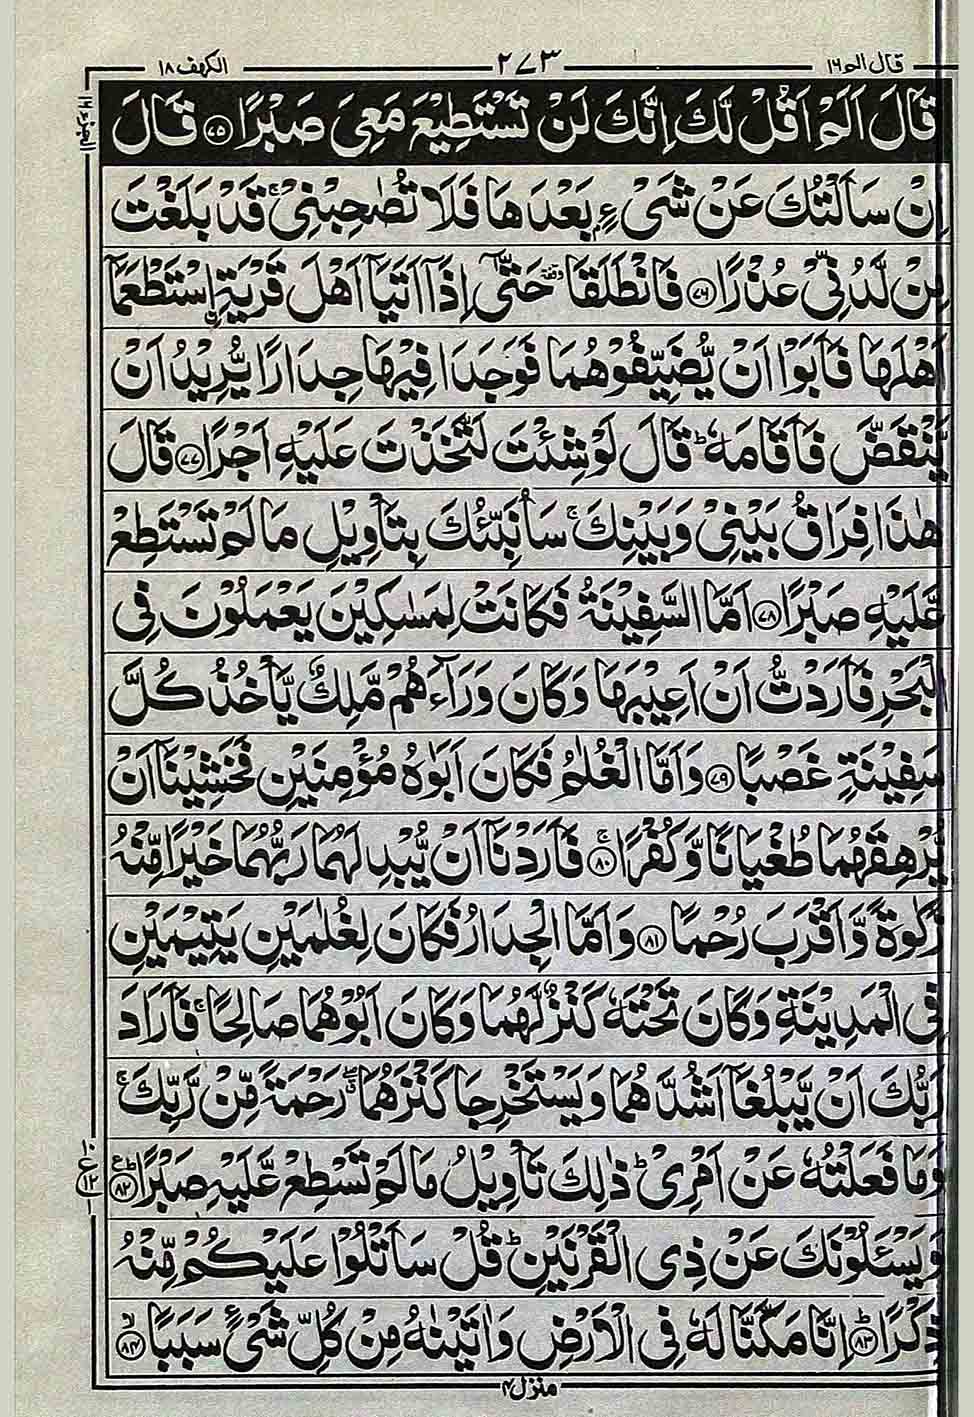 قال الم ١٦
٢٧٣
الكهف ١٨
قَالَ اَلَمْ اَقُلْ لَّكَ اِنَّكَ لَنْ تَسْتَطِيْعَ مَعِيَ صَبْرًا ﴿٧٥﴾ قَالَ
اِنْ سَاَلْتُكَ عَنْ شَيْءٍۭ بَعْدَهَا فَلَا تُصٰحِبْنِيْ ۚ قَدْ بَلَغْتَ
مِنْ لَّدُنِّيْ عُذْرًا ﴿٧٦﴾ فَانْطَلَقَا وقفة حَتّٰٓى اِذَآ اَتَيَآ اَهْلَ قَرْيَةِ ِۨاسْتَطْعَمَآ
اَهْلَهَا فَاَبَوْا اَنْ يُّضَيِّفُوْهُمَا فَوَجَدَا فِيْهَا جِدَارًا يُّرِيْدُ اَنْ
يَّنْقَضَّ فَاَقَامَهٗ ؕ قَالَ لَوْ شِئْتَ لَتَّخَذْتَ عَلَيْهِ اَجْرًا ﴿٧٧﴾ قَالَ
هٰذَا فِرَاقُ بَيْنِيْ وَبَيْنِكَ ۚ سَاُنَبِّئُكَ بِتَاْوِيْلِ مَا لَمْ تَسْتَطِعْ
عَّلَيْهِ صَبْرًا ﴿٧٨﴾ اَمَّا السَّفِيْنَةُ فَكَانَتْ لِمَسٰكِيْنَ يَعْمَلُوْنَ فِي
الْبَحْرِ فَاَرَدْتُّ اَنْ اَعِيْبَهَا وَكَانَ وَرَآءَهُمْ مَّلِكٌ يَّاْخُذُ كُلَّ
سَفِيْنَةٍ غَصْبًا ﴿٧٩﴾ وَاَمَّا الْغُلٰمُ فَكَانَ اَبَوٰهُ مُؤْمِنَيْنِ فَخَشِيْنَآ اَنْ
يُّرْهِقَهُمَا طُغْيَانًا وَّكُفْرًا ۚ ﴿٨٠﴾ فَاَرَدْنَآ اَنْ يُّبْدِلَهُمَا رَبُّهُمَا خَيْرًا مِّنْهُ
زَكٰوةً وَّاَقْرَبَ رُحْمًا ﴿٨١﴾ وَاَمَّا الْجِدَارُ فَكَانَ لِغُلٰمَيْنِ يَتِيْمَيْنِ
فِي الْمَدِيْنَةِ وَكَانَ تَحْتَهٗ كَنْزٌ لَّهُمَا وَكَانَ اَبُوْهُمَا صَالِحًا ۚ فَاَرَادَ
رَبُّكَ اَنْ يَّبْلُغَآ اَشُدَّهُمَا وَيَسْتَخْرِجَا كَنْزَهُمَا ۖ رَحْمَةً مِّنْ رَّبِّكَ ۚ
وَمَا فَعَلْتُهٗ عَنْ اَمْرِيْ ؕ ذٰلِكَ تَاْوِيْلُ مَا لَمْ تَسْطِعْ عَّلَيْهِ صَبْرًا ؕ ع ﴿٨٢﴾
وَيَسْـَٔلُوْنَكَ عَنْ ذِي الْقَرْنَيْنِ ؕ قُلْ سَاَتْلُوْا عَلَيْكُمْ مِّنْهُ
ذِكْرًا ؕ ﴿٨٣﴾ اِنَّا مَكَّنَّا لَهٗ فِي الْاَرْضِ وَاٰتَيْنٰهُ مِنْ كُلِّ شَيْءٍ سَبَبًا ۙ ﴿٨٤﴾
١٠
ع
١٢
١
منزل ٤